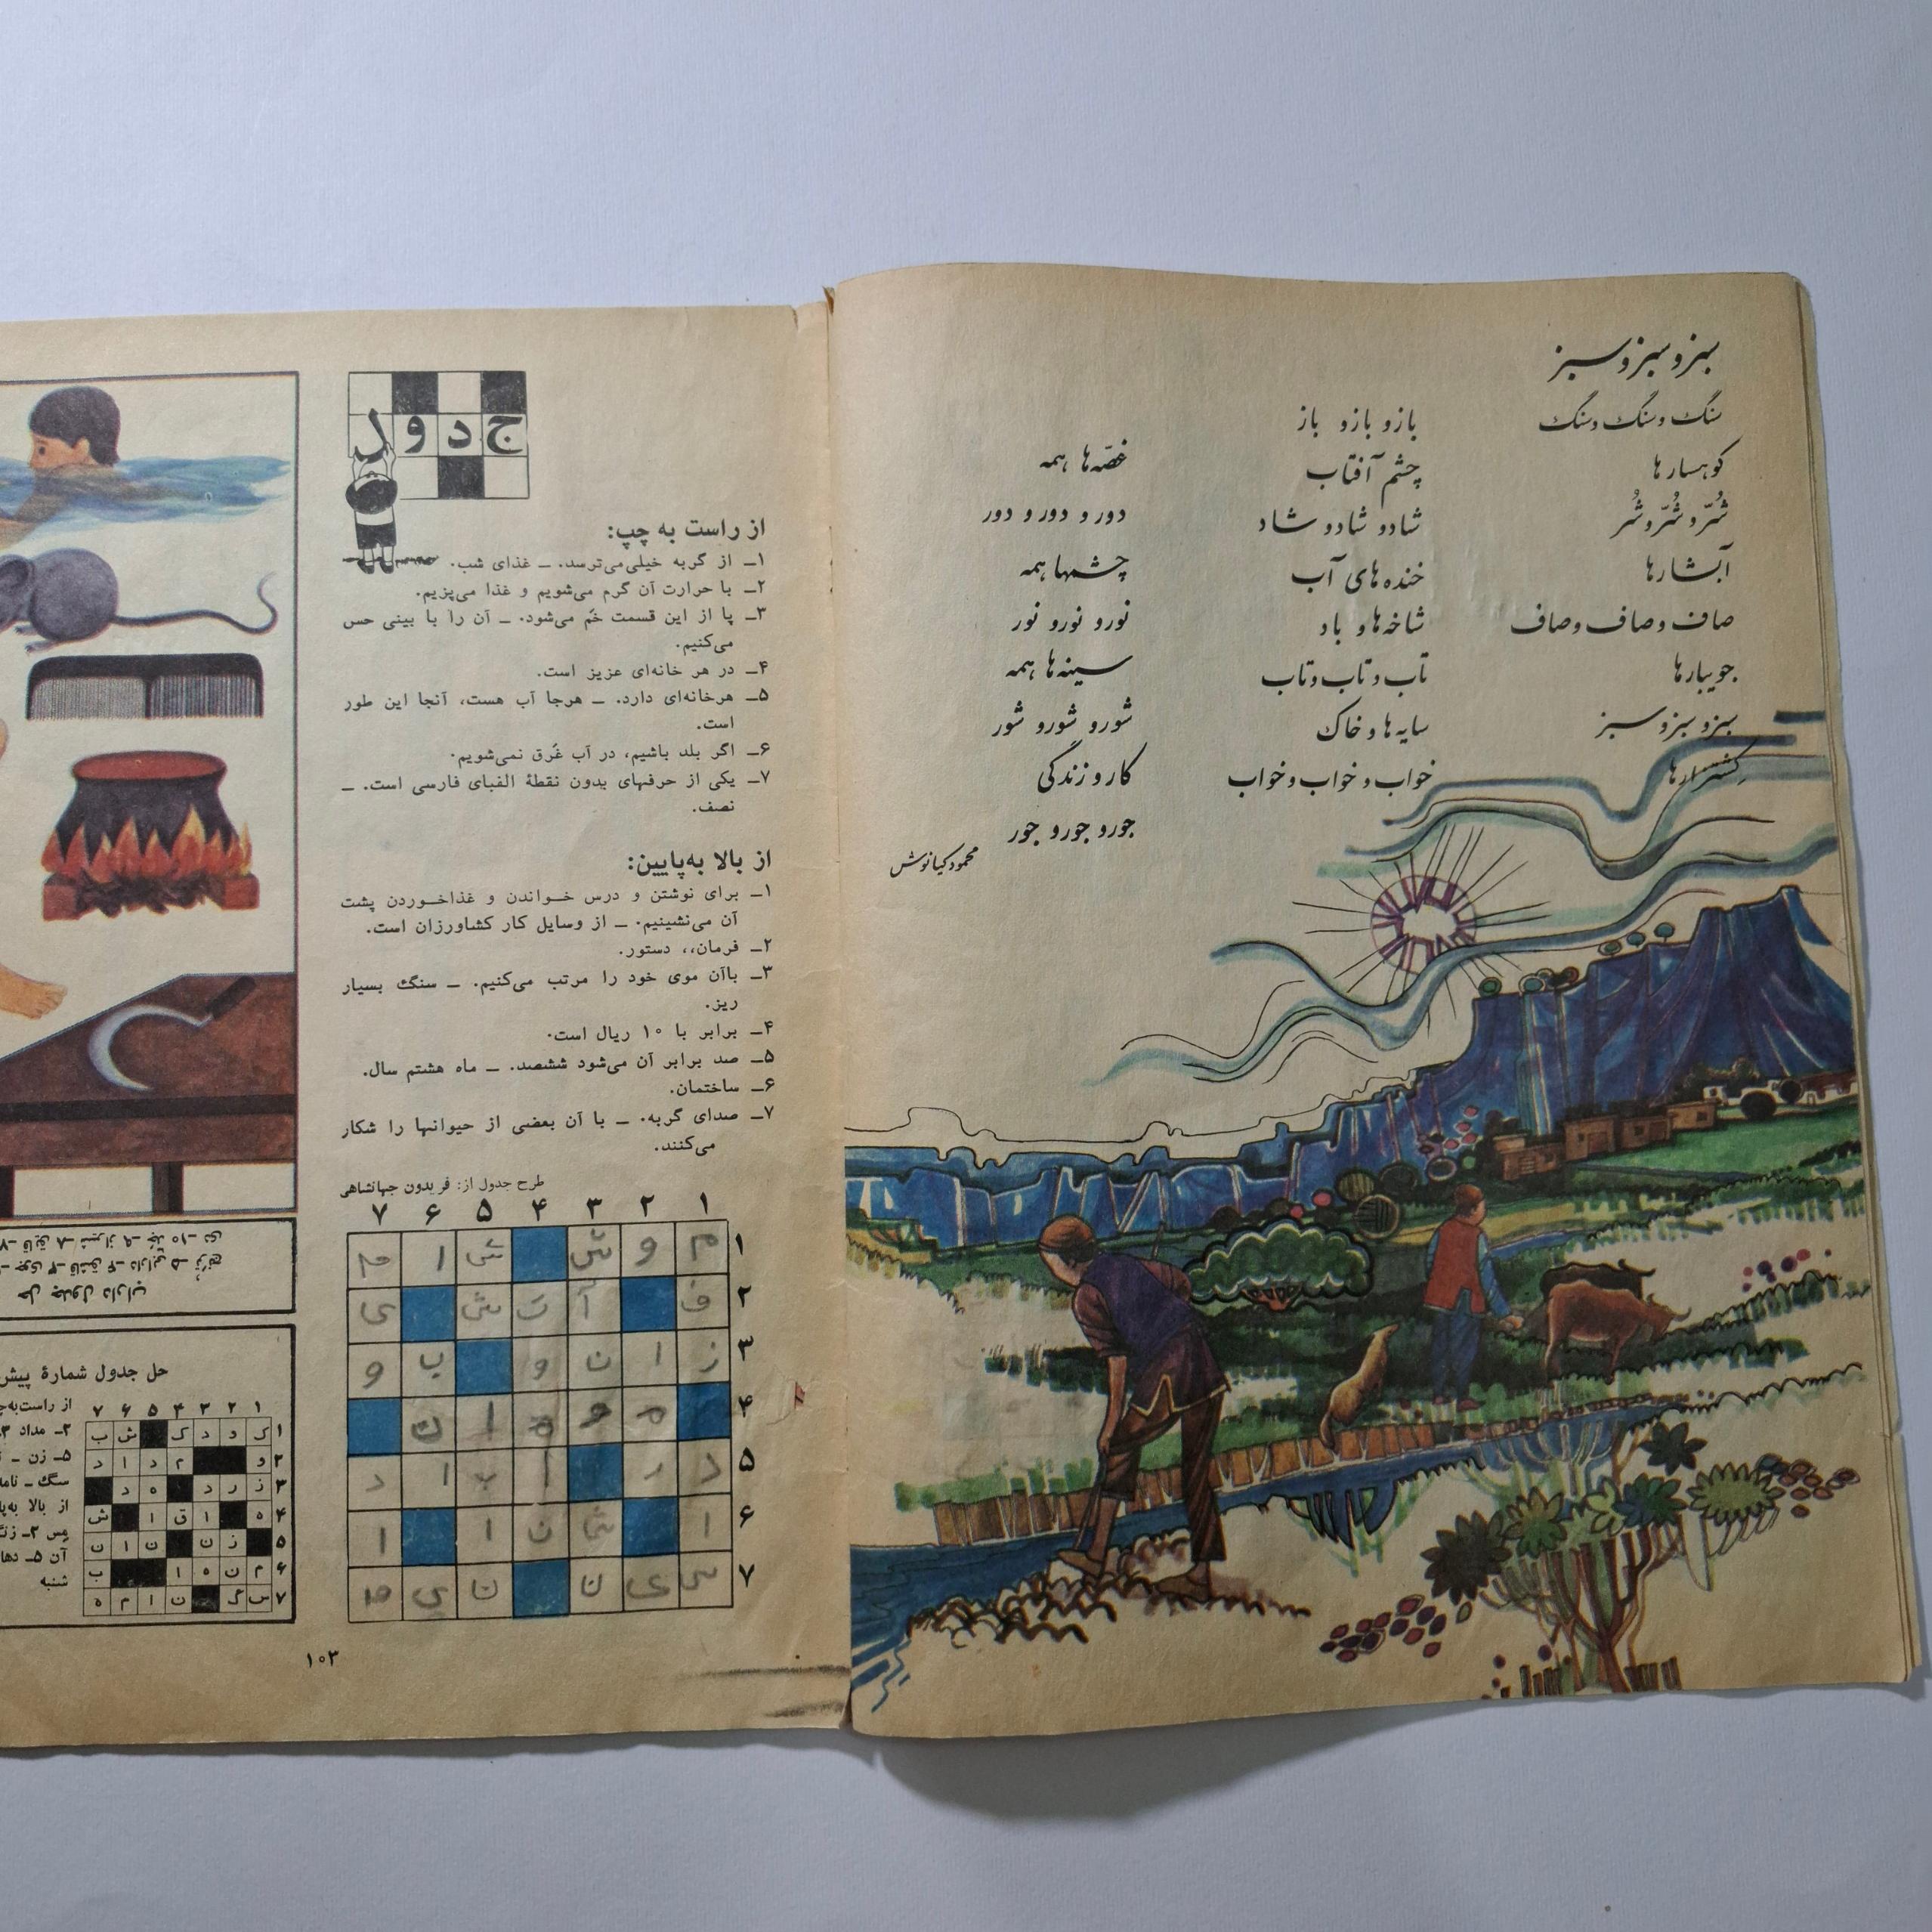 سبز و سبز و سبز
سنگ و سنگ و سنگ
کوهسارها
شُرّ و شُرّ و شُر
آبشارها
صاف و صاف و صاف
جویبارها
سبز و سبز و سبز
کشتزارها
باز و باز و باز
چشم آفتاب
شاد و شاد و شاد
خنده‌های آب
شاخه‌ها و باد
تاب و تاب و تاب
سایه‌ها و خاک
خواب و خواب و خواب
غصّه‌ها همه
دور و دور و دور
چشمها همه
نور و نور و نور
سینه‌ها همه
شور و شور و شور
کار و زندگی
جور و جور و جور
محمود کیانوش
جدول
از راست به چپ:
۱ـ از گربه خیلی‌می‌ترسد. ـ غذای شب.
۲ـ با حرارت آن گرم می‌شویم و غذا می‌پزیم.
۳ـ پا از این قسمت خَم می‌شود. ـ آن را با بینی حس
می‌کنیم.
۴ـ در هر خانه‌ای عزیز است.
۵ـ هرخانه‌ای دارد. ـ هرجا آب هست، آنجا این طور
است.
۶ـ اگر بلد باشیم، در آب غَرق نمی‌شویم.
۷ـ یکی از حرفهای بدون نقطهٔ الفبای فارسی است. ـ
نصف.
از بالا به‌پایین:
۱ـ برای نوشتن و درس خواندن و غذاخوردن پشت
آن می‌نشینیم. ـ از وسایل کار کشاورزان است.
۲ـ فرمان،، دستور.
۳ـ باآن موی خود را مرتب می‌کنیم. ـ سنگ بسیار
ریز.
۴ـ برابر با ۱۰ ریال است.
۵ـ صد برابر آن می‌شود ششصد. ـ ماه هشتم سال.
۶ـ ساختمان.
۷ـ صدای گربه. ـ با آن بعضی از حیوانها را شکار
می‌کنند.
طرح جدول از: فریدون جهانشاهی
۱ ۲ ۳ ۴ ۵ ۶ ۷
۱ م و ش ش ا م
۲ آ ت ش ی
۳ ز ا ن و ب و
۴ م ه م ا ن
۵ د ر آ ب ا د
۶ ا ش ن ا ا
۷ س ی ن ن ی م
حل جدول داراب
حل جدول شمارهٔ پیش
از راست‌به‌چ
۲ـ مداد ۳
۵ـ زن ـ
سگ ـ نامه
از بالا به‌پا
آن ۵ـ دها
شنبه
۱ ۲ ۳ ۴ ۵ ۶ ۷
۱ ک و د ک ش ب
۲ و م د ا د
۳ ز ر د ه د
۴ ه ا ق ا ش
۵ ز ن ن ا ن
۶ م ن ه ا ب
۷ س گ ن ا م ه
۱۰۳